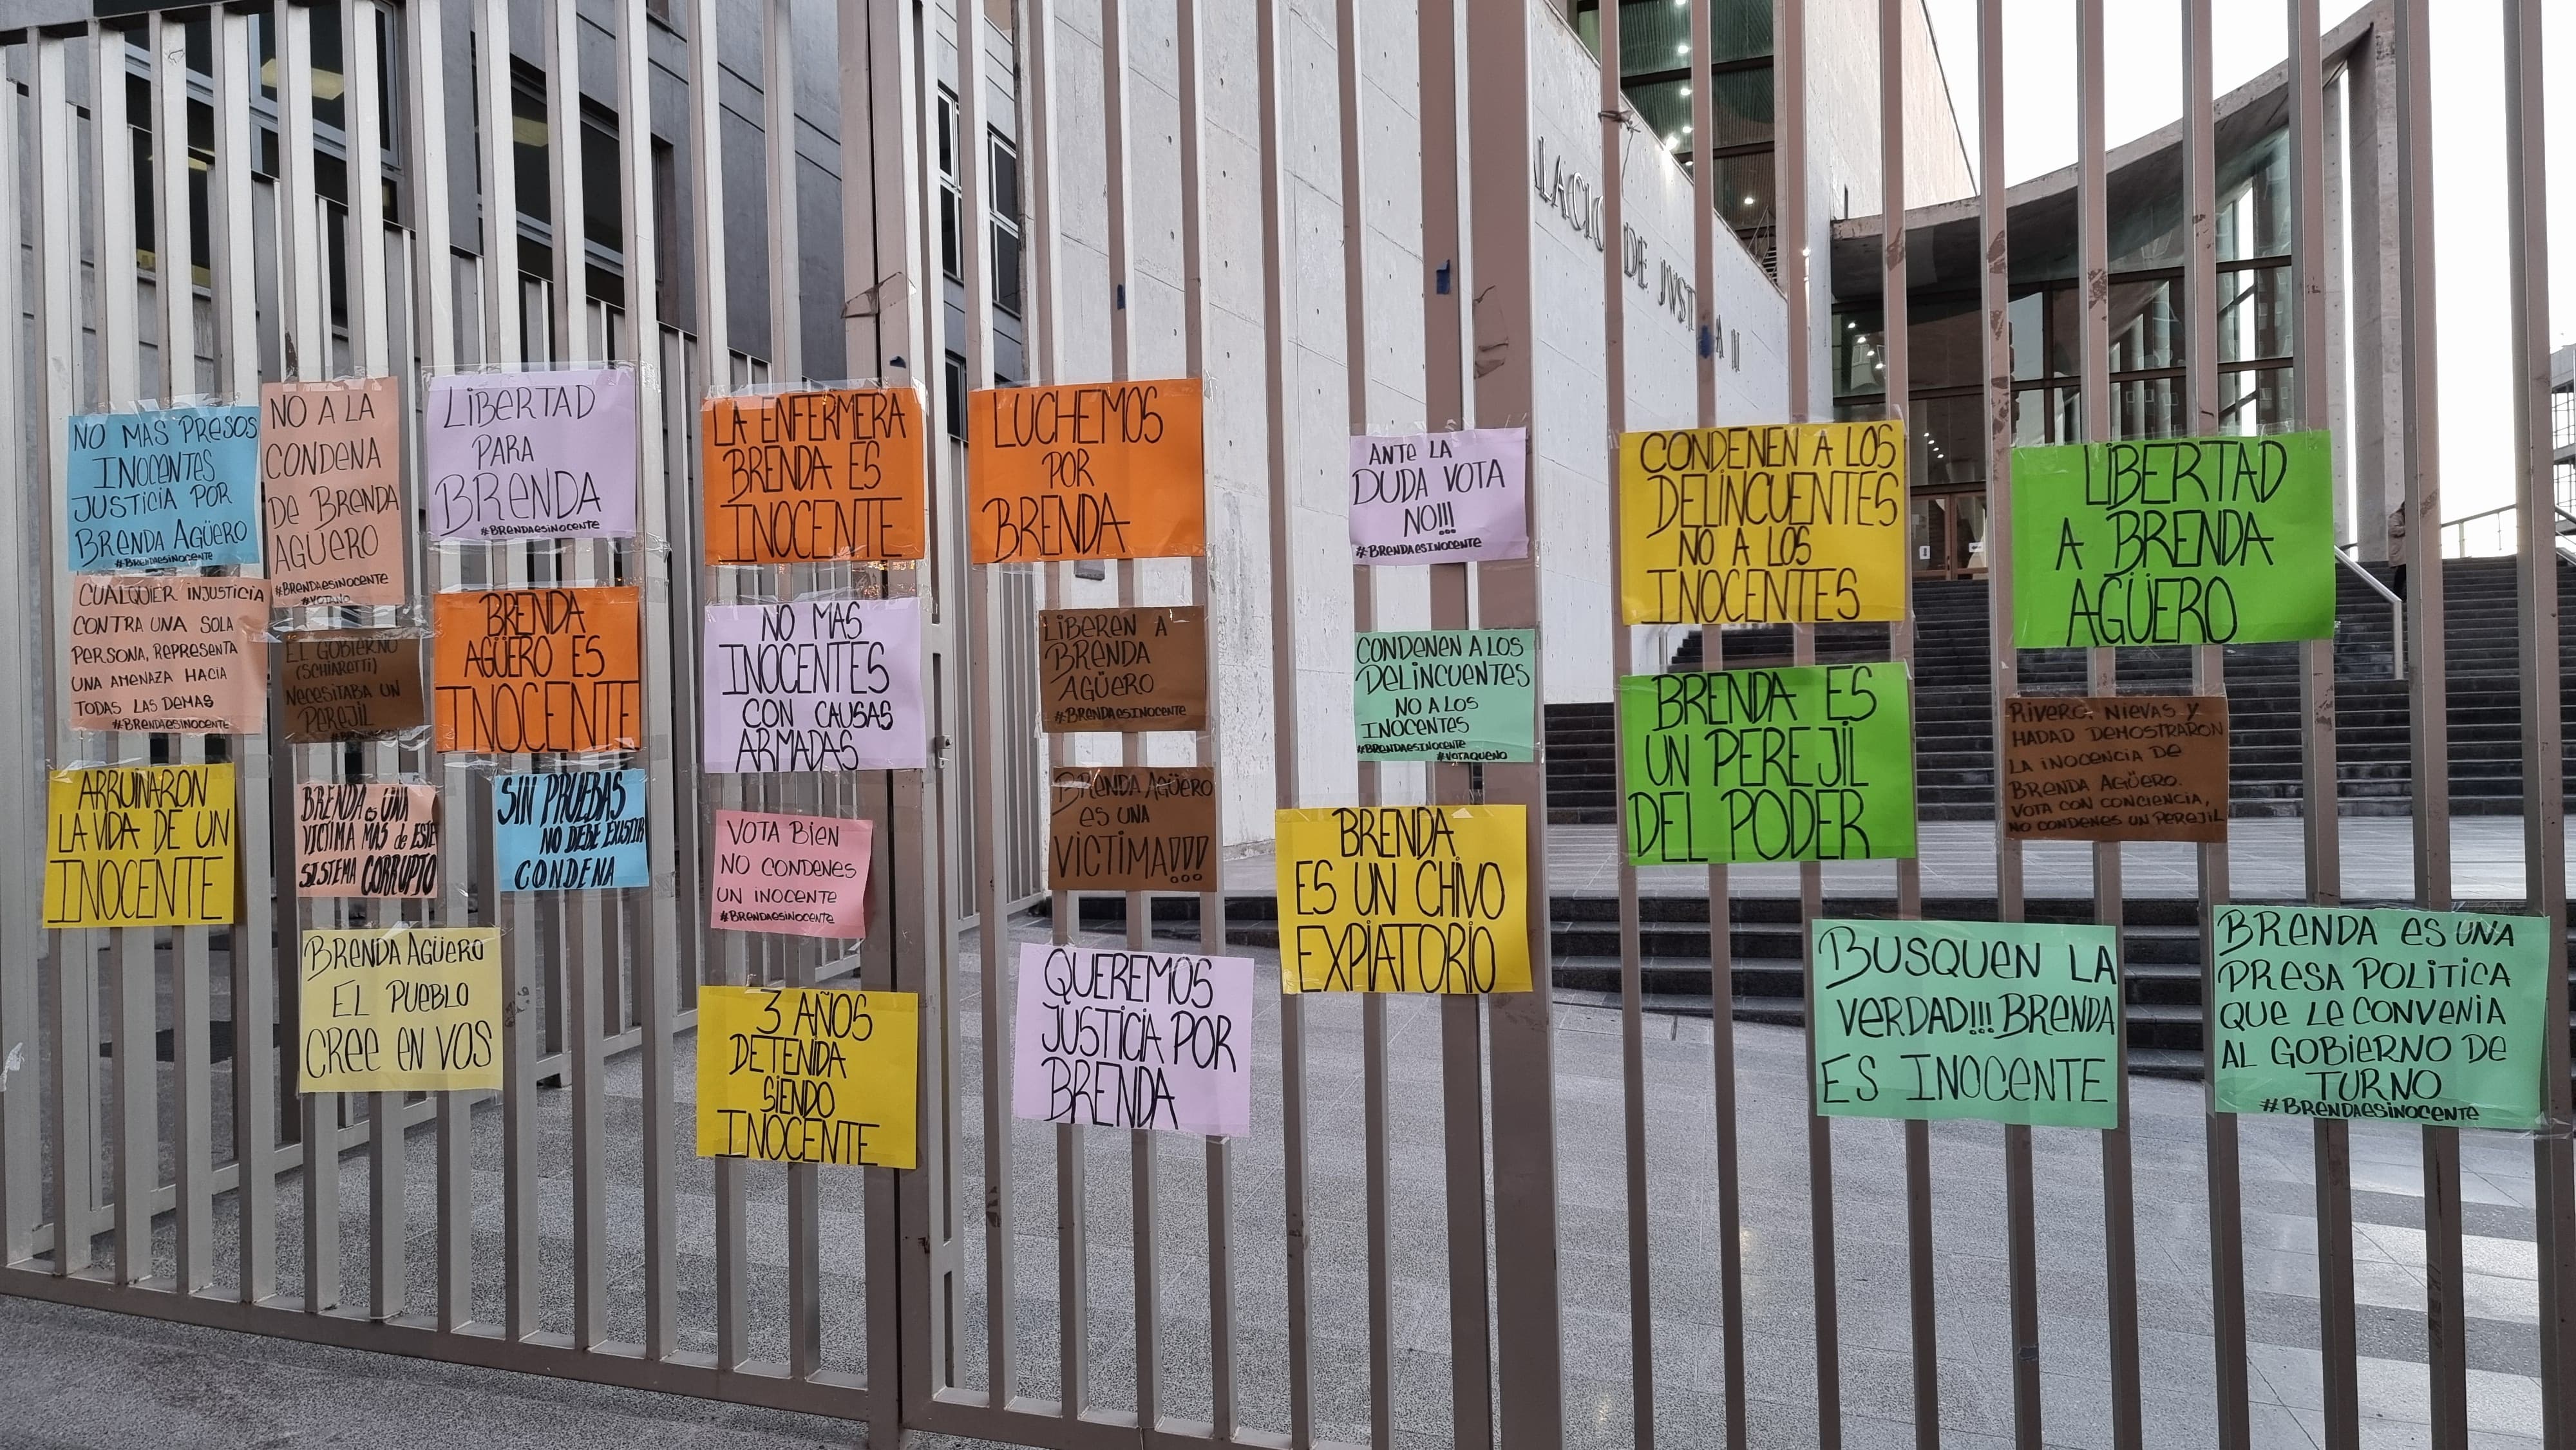 LACIO DE JVSTI A II
NO MAS PRESOS
INOCENTES
JUSTICIA POR
BRENDA AGÜERO
#BRENDAESINOCENTE
NO A LA
CONDENA
DE BRENDA
AGÜERO
#BRENDAESINOCENTE
#VOTANO
LIBERTAD
PARA
BRENDA
#BRENDAESINOCENTE
LA ENFERMERA
BRENDA ES
INOCENTE
LUCHEMOS
POR
BRENDA
ANTE LA
DUDA VOTA
NO!!!
#BRENDAESINOCENTE
CONDENEN A LOS
DELINCUENTES
NO A LOS
INOCENTES
LIBERTAD
A BRENDA
AGÜERO
CUALQUIER INJUSTICIA
CONTRA UNA SOLA
PERSONA, REPRESENTA
UNA AMENAZA HACIA
TODAS LAS DEMAS
#BRENDAESINOCENTE
EL GOBIERNO
(SCHIARETTI)
NECESITABA UN
PEREJIL
BRENDA
AGÜERO ES
INOCENTE
NO MAS
INOCENTES
CON CAUSAS
ARMADAS
LIBEREN A
BRENDA
AGÜERO
#BRENDAESINOCENTE
CONDENEN A LOS
DELINCUENTES
NO A LOS
INOCENTES
#BRENDAESINOCENTE
#VOTAQUENO
BRENDA ES
UN PEREJIL
DEL PODER
RIVERO, NIEVAS Y
HADAD DEMOSTRARON
LA INOCENCIA DE
BRENDA AGÜERO.
VOTA CON CONCIENCIA,
NO CONDENES UN PEREJIL
ARRUINARON
LA VIDA DE UN
INOCENTE
BRENDA es UNA
VICTIMA MAS de ESTE
SISTEMA CORRUPTO
SIN PRUEBAS
NO DEBE EXISTIR
CONDENA
VOTA BIEN
NO CONDENES
UN INOCENTE
#BRENDAESINOCENTE
BRENDA AGÜERO
ES UNA
VICTIMA!!!
BRENDA
ES UN CHIVO
EXPIATORIO
BRENDA AGÜERO
EL PUEBLO
CREE EN VOS
3 AÑOS
DETENIDA
SIENDO
INOCENTE
QUEREMOS
JUSTICIA POR
BRENDA
BUSQUEN LA
VERDAD!!! BRENDA
ES INOCENTE
BRENDA ES UNA
PRESA POLITICA
QUE LE CONVENIA
AL GOBIERNO DE
TURNO
#BRENDAESINOCENTE